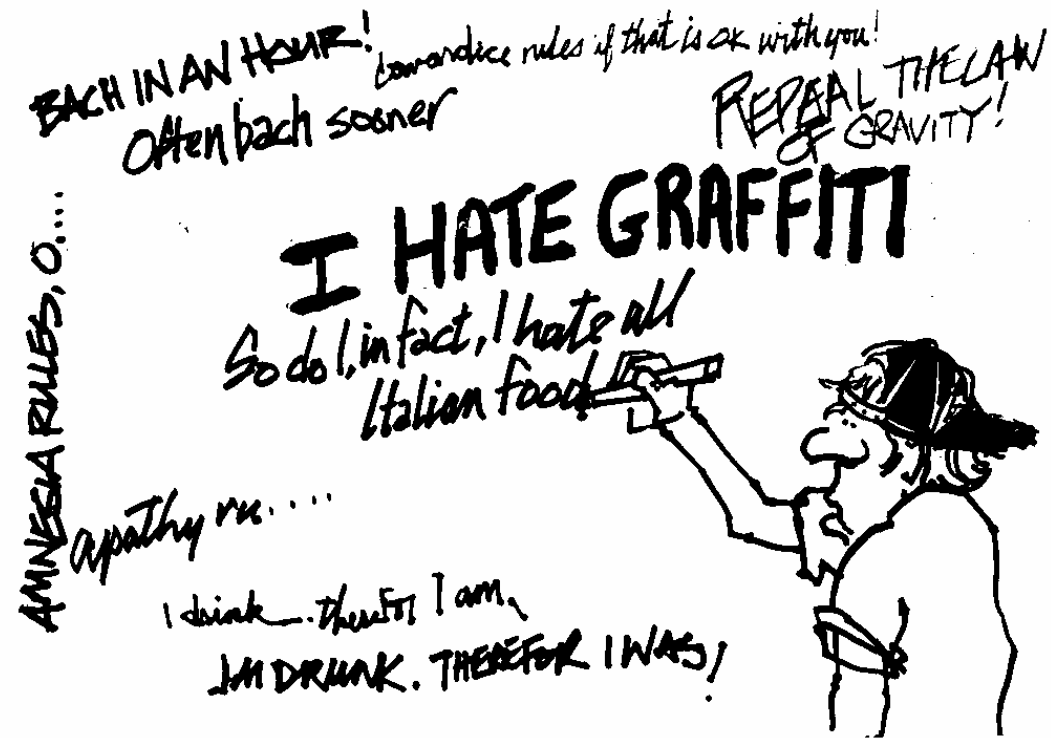 BACH IN AN HOUR!
Often bach sooner
Cowardice rules if that is ok with you!
REPEAL THE LAW
OF GRAVITY!
I HATE GRAFFITI
So do I, in fact, I hate all
Italian food!
AMNESIA RULES, O....
apathy ru....
I drink... therefor I am.
IM DRUNK. THEREFOR I WAS!